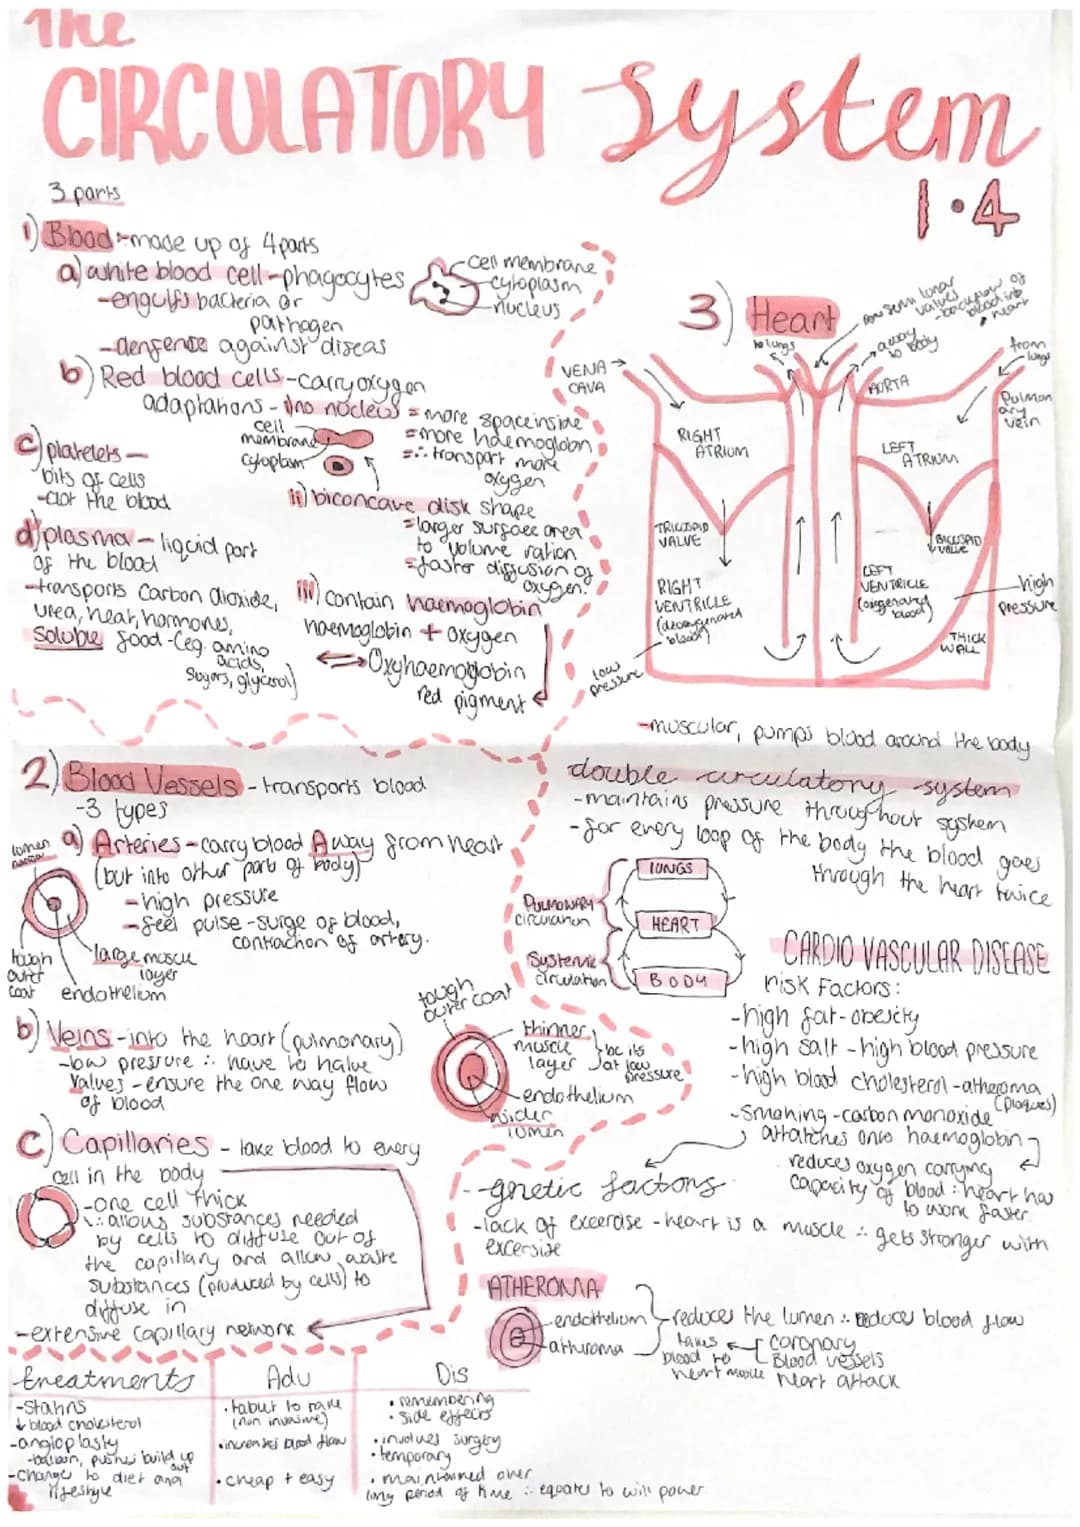 The
CIRCULATORY System
1.4
3 parts
1) Blood :- made up of 4 parts
a) white blood cell - phagocytes
- engulfs bacteria or
pathogen
- denfence against diseas
cell membrane
cytoplasm
nucleus
b) Red blood cells - carry oxygen
adaptations - i) no nucleus = more space inside
= more haemoglobin
= ∴ transport more
oxygen
cell
membrane
cytoplasm
ii) biconcave disk shape
= larger surface area
to volume ration
= faster diffusion of
oxygen.
iii) contain haemoglobin
haemoglobin + oxygen
⇌ Oxyhaemoglobin
red pigment
c) platelets -
bits of cells
- clot the blood
d) plasma - liquid part
of the blood
- transports carbon dioxide,
urea, heat, hormones,
soluble food - (eg. amino
acids,
sugars, glycerol)
3) Heart
semi lunar
valves
- backflow of
blood into
heart
to lungs
away
to body
from
lungs
VENA
CAVA
AORTA
Pulmon
ary
vein
RIGHT
ATRIUM
LEFT
ATRIUM
TRICUSPID
VALVE
BICUSPID
VALVE
RIGHT
VENTRICLE
(deoxygenated
blood)
LEFT
VENTRICLE
(oxygenated
blood)
high
pressure
THICK
WALL
low
pressure
- muscular, pumps blood around the body
double circulatory system
- maintains pressure throughout system
- for every loop of the body the blood goes
through the heart twice
LUNGS
PULMONARY
circulation
HEART
Systemic
circulation
BODY
2) Blood Vessels - transports blood
- 3 types
a) Arteries - carry blood Away from heart
(but into other part of body)
- high pressure
- feel pulse - surge of blood,
contraction of artery.
lumen
narrow
tough
outer
coat
large muscle
layer
endothelium
b) Veins - into the heart (pulmonary)
- low pressure ∴ have to halve
valves - ensure the one way flow
of blood
tough
outer coat
thinner
muscle
layer
bc its
at low
pressure
endothelium
wider
lumen
c) Capillaries - take blood to every
cell in the body
- one cell thick
∴ allows substances needed
by cells to diffuse out of
the capillary and allow waste
substances (produced by cells) to
diffuse in
- extensive capillary network
CARDIO VASCULAR DISEASE
risk factors:
- high fat - obesity
- high salt - high blood pressure
- high blood cholesterol - atheroma
(plaques)
- Smoking - carbon monoxide
attatches onto haemoglobin
reduces oxygen carrying
capacity of blood ∴ heart has
to work faster
- gnetic factors
- lack of excercise - heart is a muscle ∴ gets stronger with
excersise
ATHEROMA
endothelium
atheroma
reduces the lumen ∴ reduces blood flow
takes
blood to
heart muscle
coronary
Blood vessels
heart attack
treatments Adv Dis
- statins
↓ blood cholesterol
· tablet to take
(non invasive)
· remembering
· side effects
- angioplasty
- balloon, pushes build up
out
· increases blood flow
· involves surgery
· temporary
- change to diet and
lifestyle
· cheap + easy
· maintained over
long period of time ∴ equates to will power